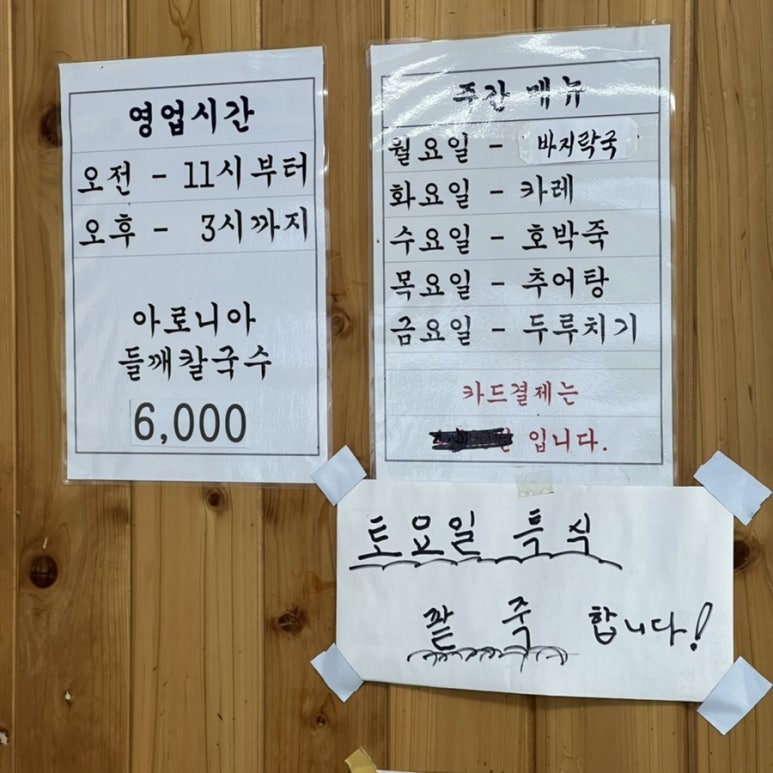 영업시간
오전 - 11시부터
오후 - 3시까지
아로니아
들깨칼국수
6,000
주간 메뉴
월요일 - 바지락국
화요일 - 카레
수요일 - 호박죽
목요일 - 추어탕
금요일 - 두루치기
카드결제는
입니다.
토요일 특식
팥죽 합니다!